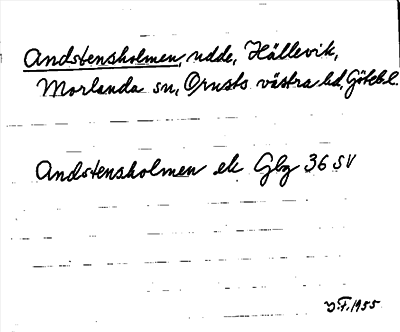 Andstensholmen, udde, Hällevik,
Morlanda sn, Orusts västra hd, Götebl.
Andstensholmen ek Gbg 36 SV
J.F. 1955